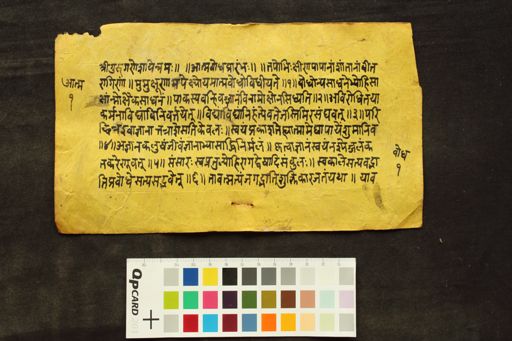 श्रीगणेशायनमः॥ ॥आत्मबोधप्रारंभः॥ ॥तपोभिःक्षीणपापानांशांतानांवीत
रागिणां॥मुमुक्षूणामपेक्ष्योयमात्मबोधोविधीयते॥१॥बोधोन्यसाधनेभ्योहिसा
क्षान्मोक्षैकसाधनं॥पाकस्यवन्हिवज्ज्ञानंविनामोक्षोनसिध्यति॥२॥अविरोधितया
कर्मनाविद्यांविनिवर्तयेत्॥विद्याविद्यांनिहंत्येवतेजस्तिमिरसंघवत्॥३॥परि
च्छिन्नइवाज्ञानात्तन्नाशेसतिकेवलः॥स्वयंप्रकाशतेह्यात्मामेघापायेंशुमानिव
॥४॥अज्ञानकलुषंजीवंज्ञानाभ्यासाद्विनिर्मलं॥कृत्वाज्ञानंस्वयंनश्येज्जलंक
तकरेणुवत्॥५॥संसारःस्वप्नतुल्योहिरागद्वेषादिसंकुलः॥स्वकालेसत्यवद्भा
तिप्रबोधेसत्यसद्भवेत्॥६॥तावत्सत्यंजगद्भातिशुक्तिकारजतंयथा॥याव
आत्म
१
बोध
१
QPCARD